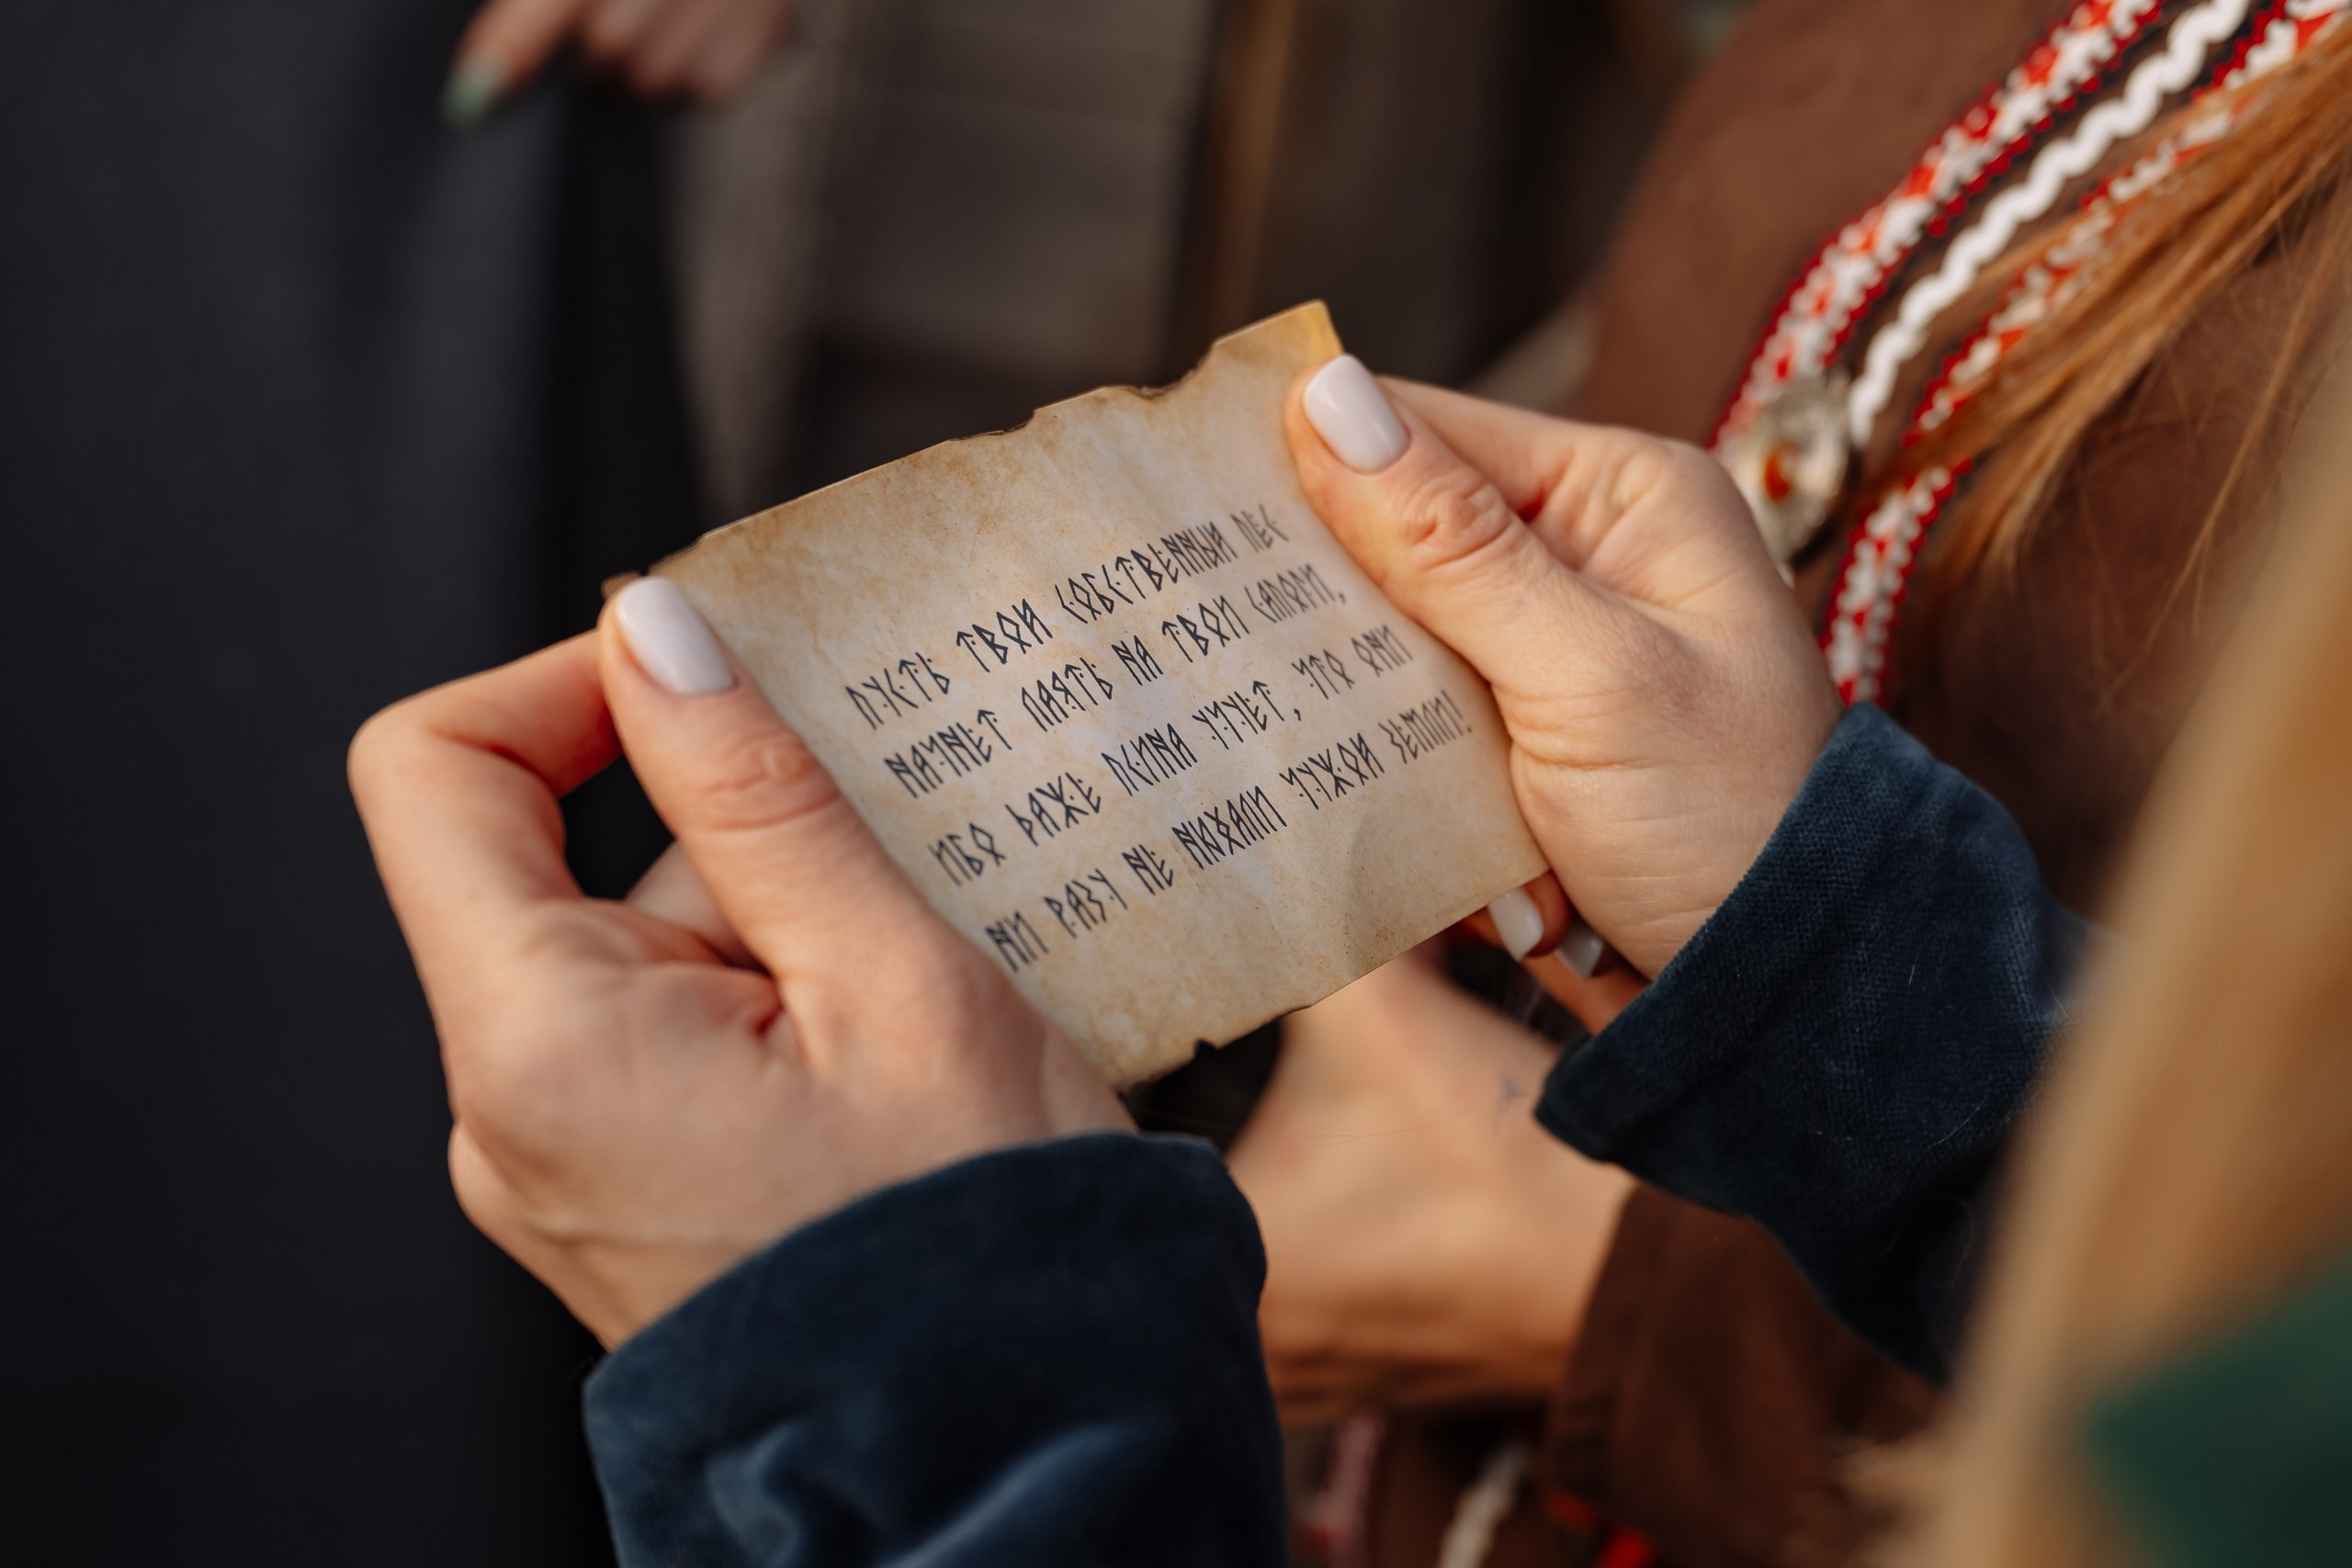 ПУСТЬ ТВОЙ СОБСТВЕННЫЙ ПЕС
НАЧНЕТ ЛАЯТЬ НА ТВОИ САПОГИ,
ИБО ДАЖЕ ПСИНА УЧУЕТ, ЧТО ОНИ
НИ РАЗУ НЕ НЮХАЛИ ЧУЖОЙ ЗЕМЛИ!